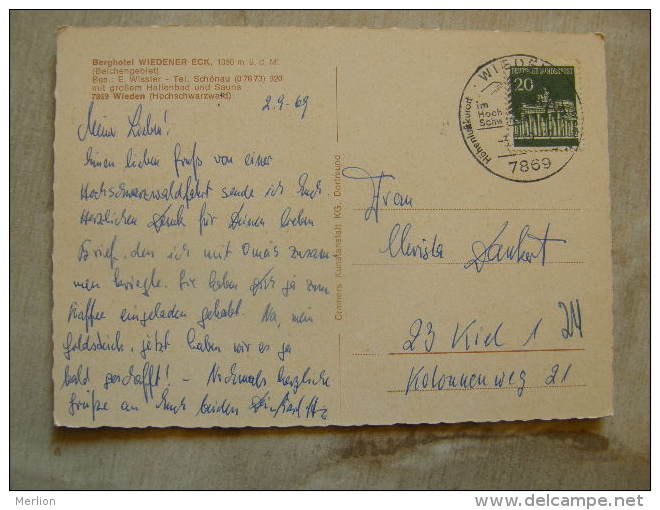 Berghotel WIEDENER ECK, 1050 m ü. d. M.
(Belchengebiet)
Bes.: E. Wissler - Tel. Schönau (07673) 920
mit großem Hallenbad und Sauna
7869 Wieden (Hochschwarzwald)
2.9.69
Meine Lieben!
Einen lieben Gruß von einer
Hochschwarzwaldfahrt sende ich Euch
Herzlichen Dank für Deinen lieben
Brief, den ich mit Omas zusam
men kriegte. Sie haben ja zum
Kaffee eingeladen gehabt. Na, mein
jetzt haben wir es ja
bald geschafft! - Nochmals herzliche
Grüße an Euch beiden
Cramers Kunstanstalt KG, Dortmund
DEUTSCHE BUNDESPOST
20
Höhenluftkurort
im
Hoch
Schw
7869
Frau
Christa
23 Kiel 1
Kolonnenweg 21
Merlion
www.delcampe.net